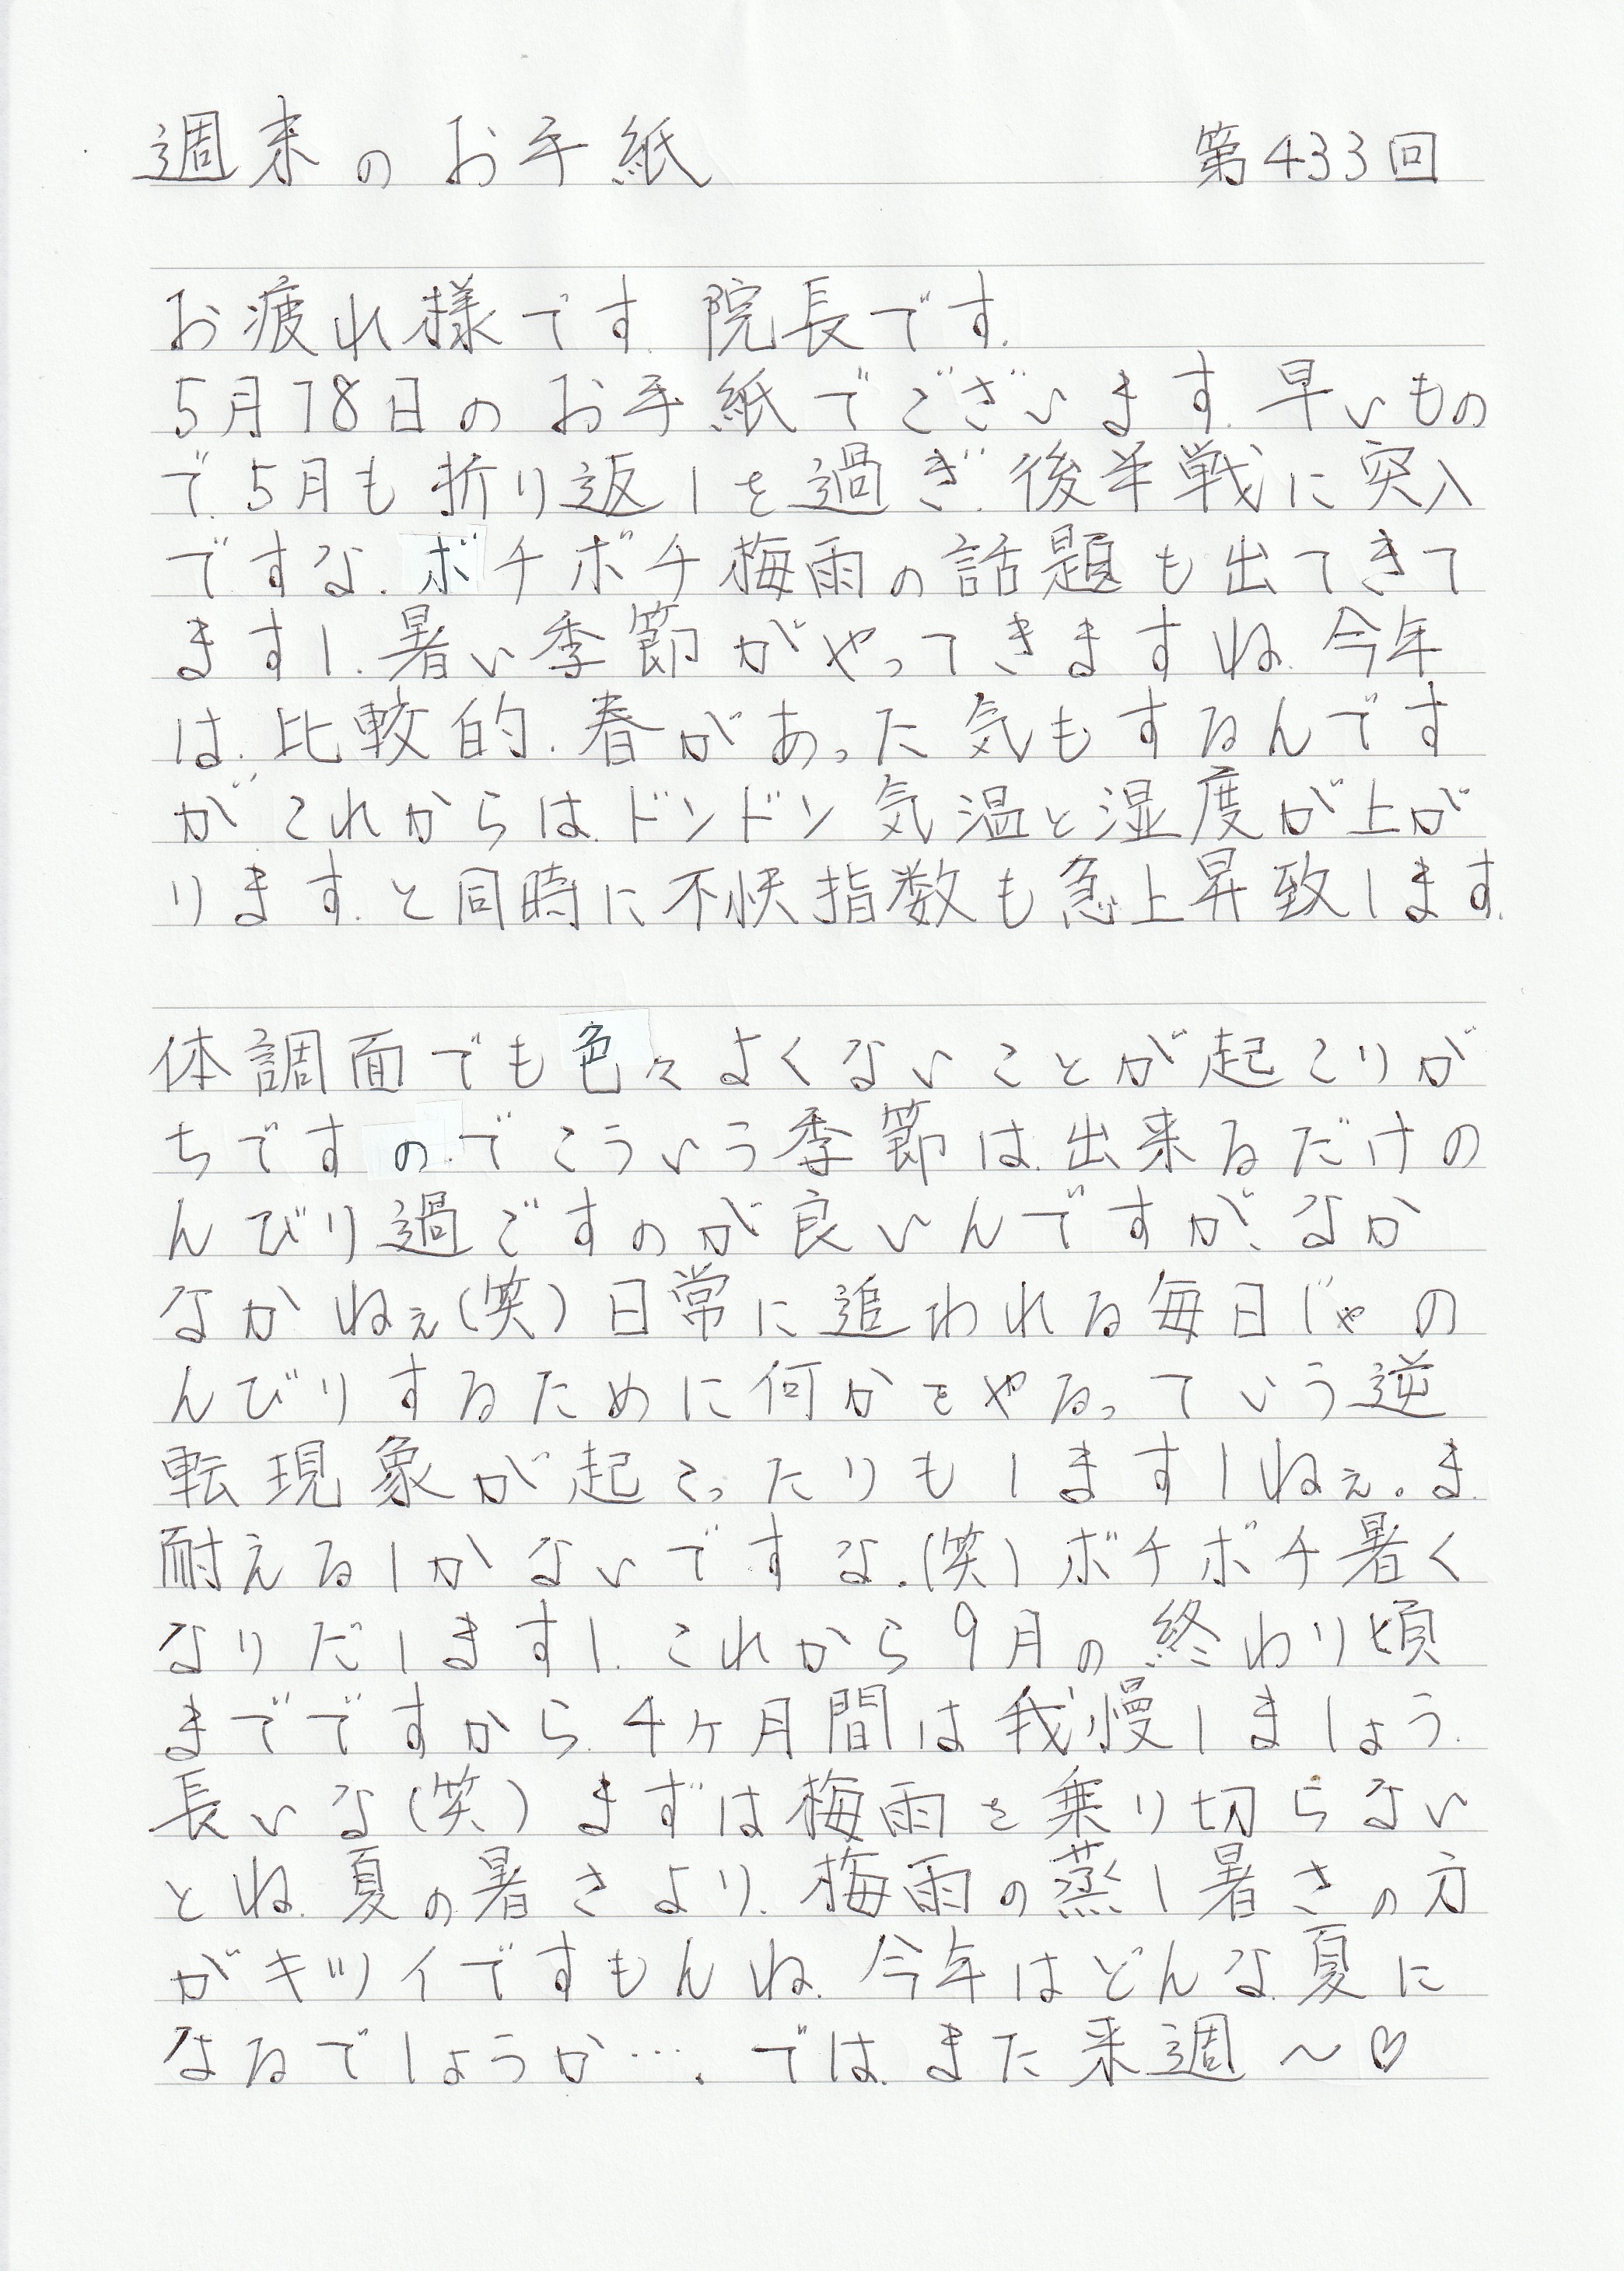 週末のお手紙 第433回
お疲れ様です.院長です.
5月18日のお手紙でございます.早いもの
で.5月も折り返しを過ぎ.後半戦に突入
ですな.ボチボチ梅雨の話題も出てきて
ますし.暑い季節がやってきますね.今年
は.比較的.春があった気もするんです
が.これからは.ドンドン気温と湿度が上が
ります.と同時に不快指数も急上昇致します.
体調面でも色々よくないことが起こりが
ちですので.こういう季節は.出来るだけの
んびり過ごすのが良いんですが、なか
なかねぇ(笑)日常に追われる毎日じゃの
んびりするために何かをやるっていう逆
転現象が起こったりもしますしねぇ。ま
耐えるしかないですな.(笑)ボチボチ暑く
なりだしますし.これから9月の終わり頃
までですから.4ヶ月間は我慢しましょう.
長いな(笑)まずは梅雨を乗り切らない
とね.夏の暑さより.梅雨の蒸し暑さの方
がキツイですもんね.今年はどんな夏に
なるでしょうか….では.また来週〜♡